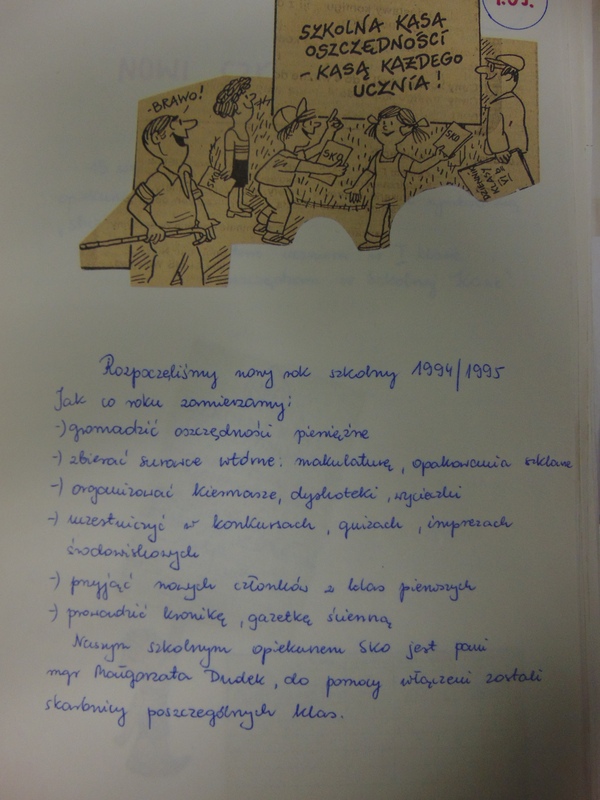 SZKOLNA KASA
OSZCZĘDNOŚCI
- KASĄ KAŻDEGO
UCZNIA!
-BRAWO!
SKO
SKO
SKO
Rozpoczęliśmy nowy rok szkolny 1994/1995
Jak co roku zamierzamy:
-) gromadzić oszczędności pieniężne
-) zbierać surowce wtórne: makulaturę, opakowania szklane
-) organizować kiermasze, dyskoteki, wycieczki
-) uczestniczyć w konkursach, quizach, imprezach
środowiskowych
-) przyjąć nowych członków z klas pierwszych
-) prowadzić kronikę, gazetkę ścienną
Naszym szkolnym opiekunem SKO jest pani
mgr Małgorzata Dudek, do pomocy włączeni zostali
skarbnicy poszczególnych klas.